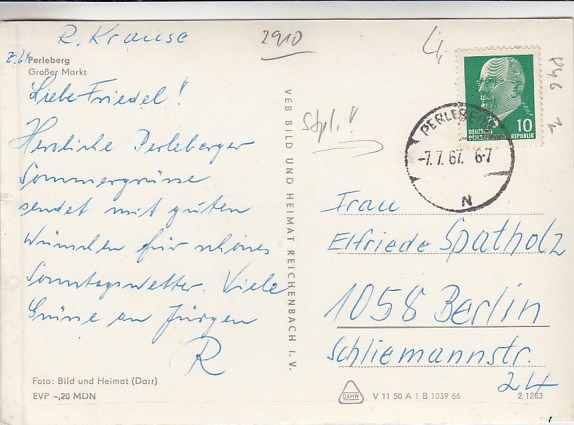 R. Krause
2910
Perleberg
Großer Markt
Liebe Friedel!
Herzliche Perleberger
Sommergrüße
sendet mit guten
Wünschen für schönes
Sonntagswetter. Viele
Grüße an Jürgen
R
Foto: Bild und Heimat (Darr)
EVP -,20 MDN
VEB BILD UND HEIMAT REICHENBACH I. V.
10
DEUTSCHE
DEMOKRATISCHE REPUBLIK
PERLEBERG
-7.7.67. 6-7
N
Frau
Elfriede Spatholz
1058 Berlin
Schliemannstr.
24
V 11 50 A 1 B 1039 66
2 1263